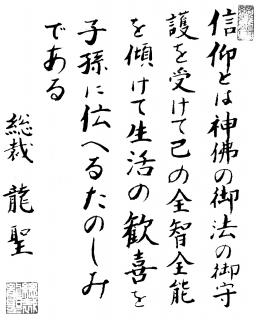 信仰とは神佛の御法の御守
護を受けて己の全智全能
を傾けて生活の歓喜を
子孫に伝へるたのしみ
である
総裁 龍聖